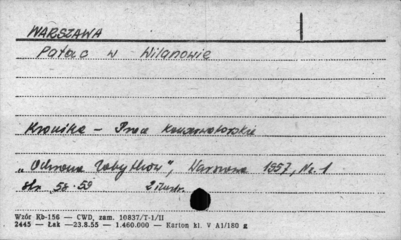 WARSZAWA
Pałac w Wilanowie
Kronika - Prace Konserwatorskie
„Ochrona Zabytków", Warszawa 1957, Nr. 1
str. 58-59 2 ilustr.
Wzór Kb-156 — CWD, zam. 10837/T-1/II
2445 — Łak —23.8.55 — 1.460.000 — Karton kl. V A1/180 g